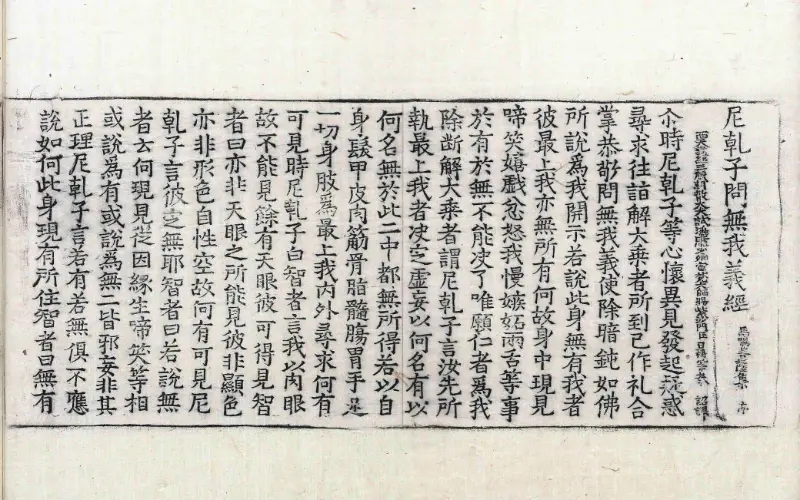 尼乹子問無我義經 馬鳴菩薩集
西天譯經三藏朝散大夫試鴻臚少卿宣梵大師賜紫沙門臣日稱等奉 詔譯
尒時尼乹子等心懷異見發起疑惑
尋求往詣解大乗者所到已作礼合
掌恭敬問無我義使除暗鈍如佛
所說爲我開示若說此身無有我者
彼最上我亦無所有何故身中現見
啼笑嬉戲忿怒我慢嫉妬兩舌等事
於有於無不能决了唯願仁者爲我
除断解大乗者謂尼乹子言汝先所
執最上我者决㝎虚妄以何名有以
何名無於此二中都無所得若以自
身髮甲皮肉筋骨脂髓膓胃手足
一切身肢爲最上我内外尋求何有
可見時尼乹子白智者言我以肉眼
故不能見餘有天眼彼可得見智
者曰亦非天眼之所能見彼非顯色
亦非形色自性空故何有可見尼
乹子言彼㝎無耶智者曰若說無
者云何現見從因緣生啼笑等相
或說爲有或說爲無二皆邪妄非其
正理尼乹子言若有若無俱不應
說如何此身現有所住智者曰無有